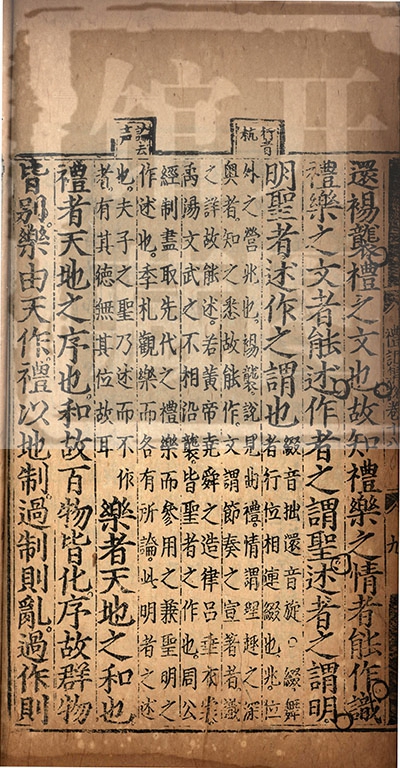 行音
杭
論去
声
還裼襲禮之文也故知禮樂之情者能作識
禮樂之文者能述作者之謂聖述者之謂明
明聖者述作之謂也
綴音拙還音旋。綴舞
者行位相連綴也兆位
外之營兆也裼襲說見曲禮情謂理趣之深
奧者知之悉故能作文謂節奏之宣著者識
之詳故能述若黃帝堯舜之造律呂垂衣裳
禹湯文武之不相沿襲皆聖者之作也周公
經制盡取先代之禮樂而參用之兼聖明之
作述也季札觀樂而各有所論此明者之述
也夫子之聖乃述而不作
者有其德無其位故耳
樂者天地之和也
禮者天地之序也和故百物皆化序故群物
皆别樂由天作禮以地制過制則亂過作則